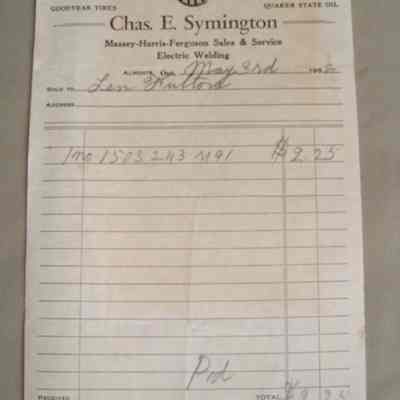 GOODYEAR TIRES QUAKER STATE OIL
Chas. E. Symington
Massey-Harris-Ferguson Sales & Service
Electric Welding
Almonte, Ont. May 3rd 195
Sold to Len Fulford
Address
1 no 1503 243 M91 $9.25
Pd
Received TOTAL $9.25